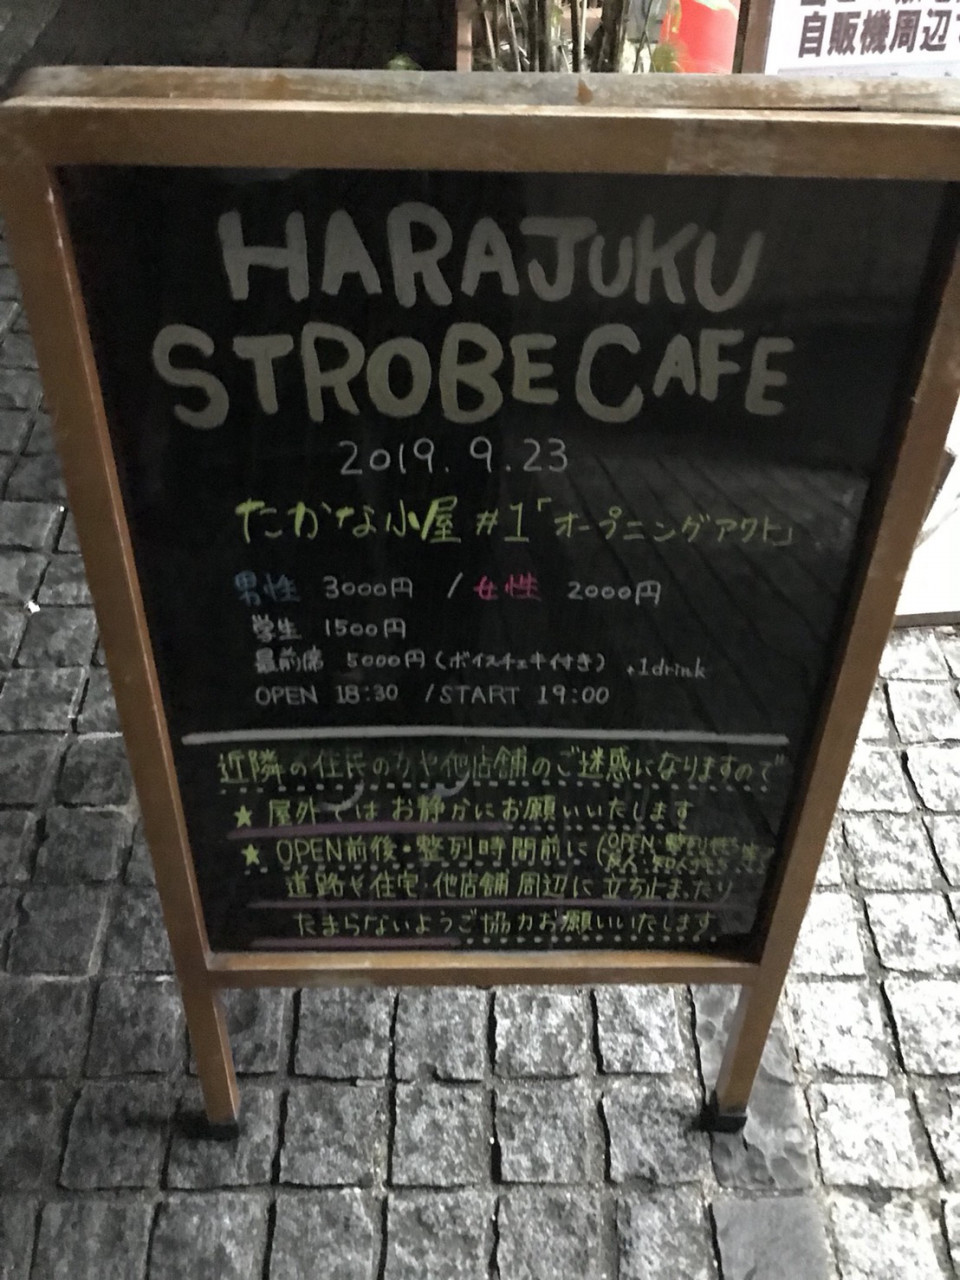 自販機周辺
HARAJUKU
STROBE CAFE
2019.9.23
たかな小屋 #1「オープニングアクト」
男性 3000円 / 女性 2000円
学生 1500円
最前席 5000円(ボイスチェキ付き) +1drink
OPEN 18:30 /START 19:00
近隣の住民の方や他店舗のご迷惑になりますので
★屋外ではお静かにお願いいたします
★OPEN前後・整列時間前に(OPEN
道路や住宅・他店舗周辺に立ち止まったり
たまらないようご協力お願いいたします